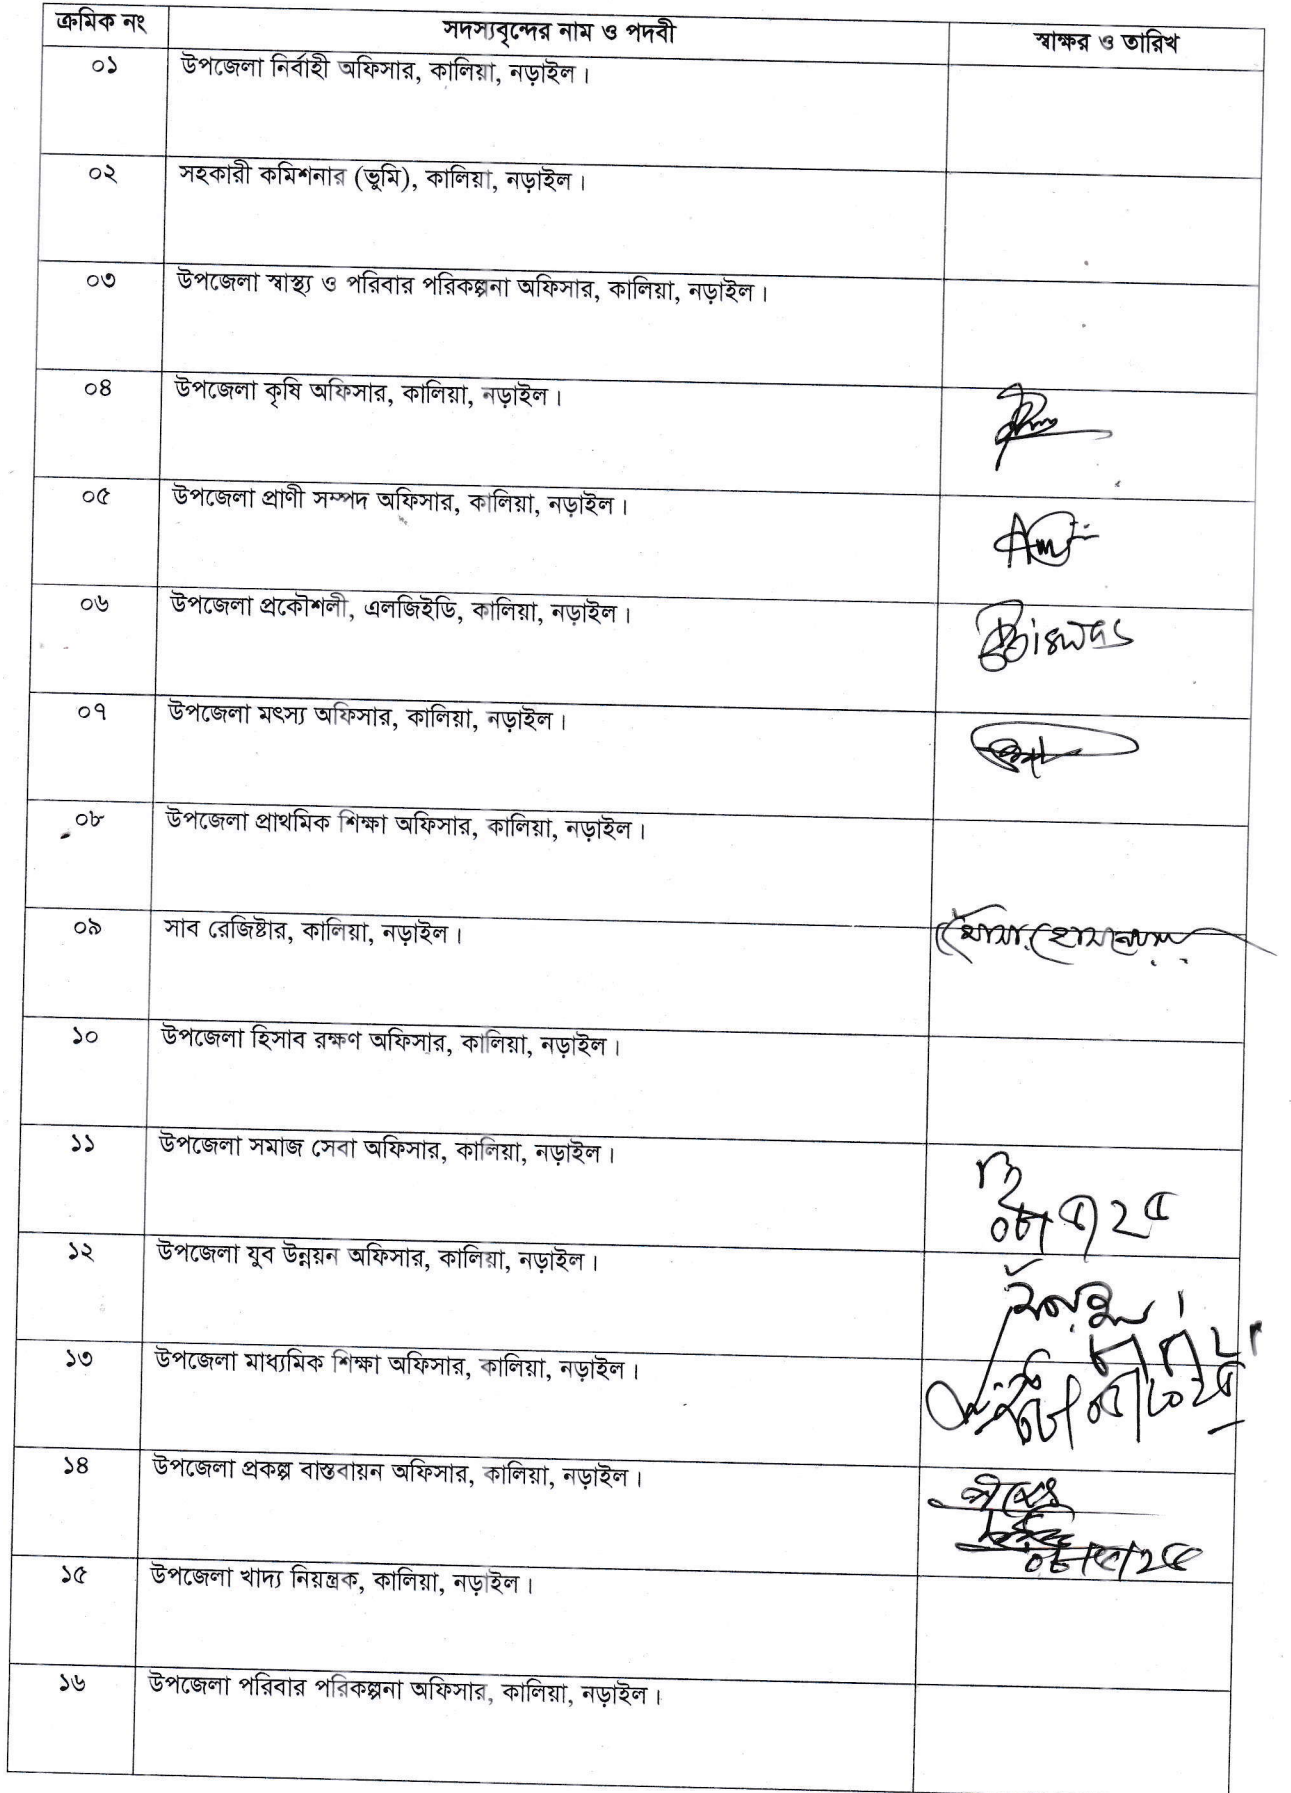 ক্রমিক নং সদস্যবৃন্দের নাম ও পদবী স্বাক্ষর ও তারিখ
০১ উপজেলা নির্বাহী অফিসার, কালিয়া, নড়াইল।
০২ সহকারী কমিশনার (ভূমি), কালিয়া, নড়াইল।
০৩ উপজেলা স্বাস্থ্য ও পরিবার পরিকল্পনা অফিসার, কালিয়া, নড়াইল।
০৪ উপজেলা কৃষি অফিসার, কালিয়া, নড়াইল।
০৫ উপজেলা প্রাণী সম্পদ অফিসার, কালিয়া, নড়াইল।
০৬ উপজেলা প্রকৌশলী, এলজিইডি, কালিয়া, নড়াইল। Biswas
০৭ উপজেলা মৎস্য অফিসার, কালিয়া, নড়াইল।
০৮ উপজেলা প্রাথমিক শিক্ষা অফিসার, কালিয়া, নড়াইল।
০৯ সাব রেজিষ্টার, কালিয়া, নড়াইল।
১০ উপজেলা হিসাব রক্ষণ অফিসার, কালিয়া, নড়াইল।
১১ উপজেলা সমাজ সেবা অফিসার, কালিয়া, নড়াইল।
১২ উপজেলা যুব উন্নয়ন অফিসার, কালিয়া, নড়াইল।
১৩ উপজেলা মাধ্যমিক শিক্ষা অফিসার, কালিয়া, নড়াইল।
১৪ উপজেলা প্রকল্প বাস্তবায়ন অফিসার, কালিয়া, নড়াইল।
১৫ উপজেলা খাদ্য নিয়ন্ত্রক, কালিয়া, নড়াইল।
১৬ উপজেলা পরিবার পরিকল্পনা অফিসার, কালিয়া, নড়াইল।